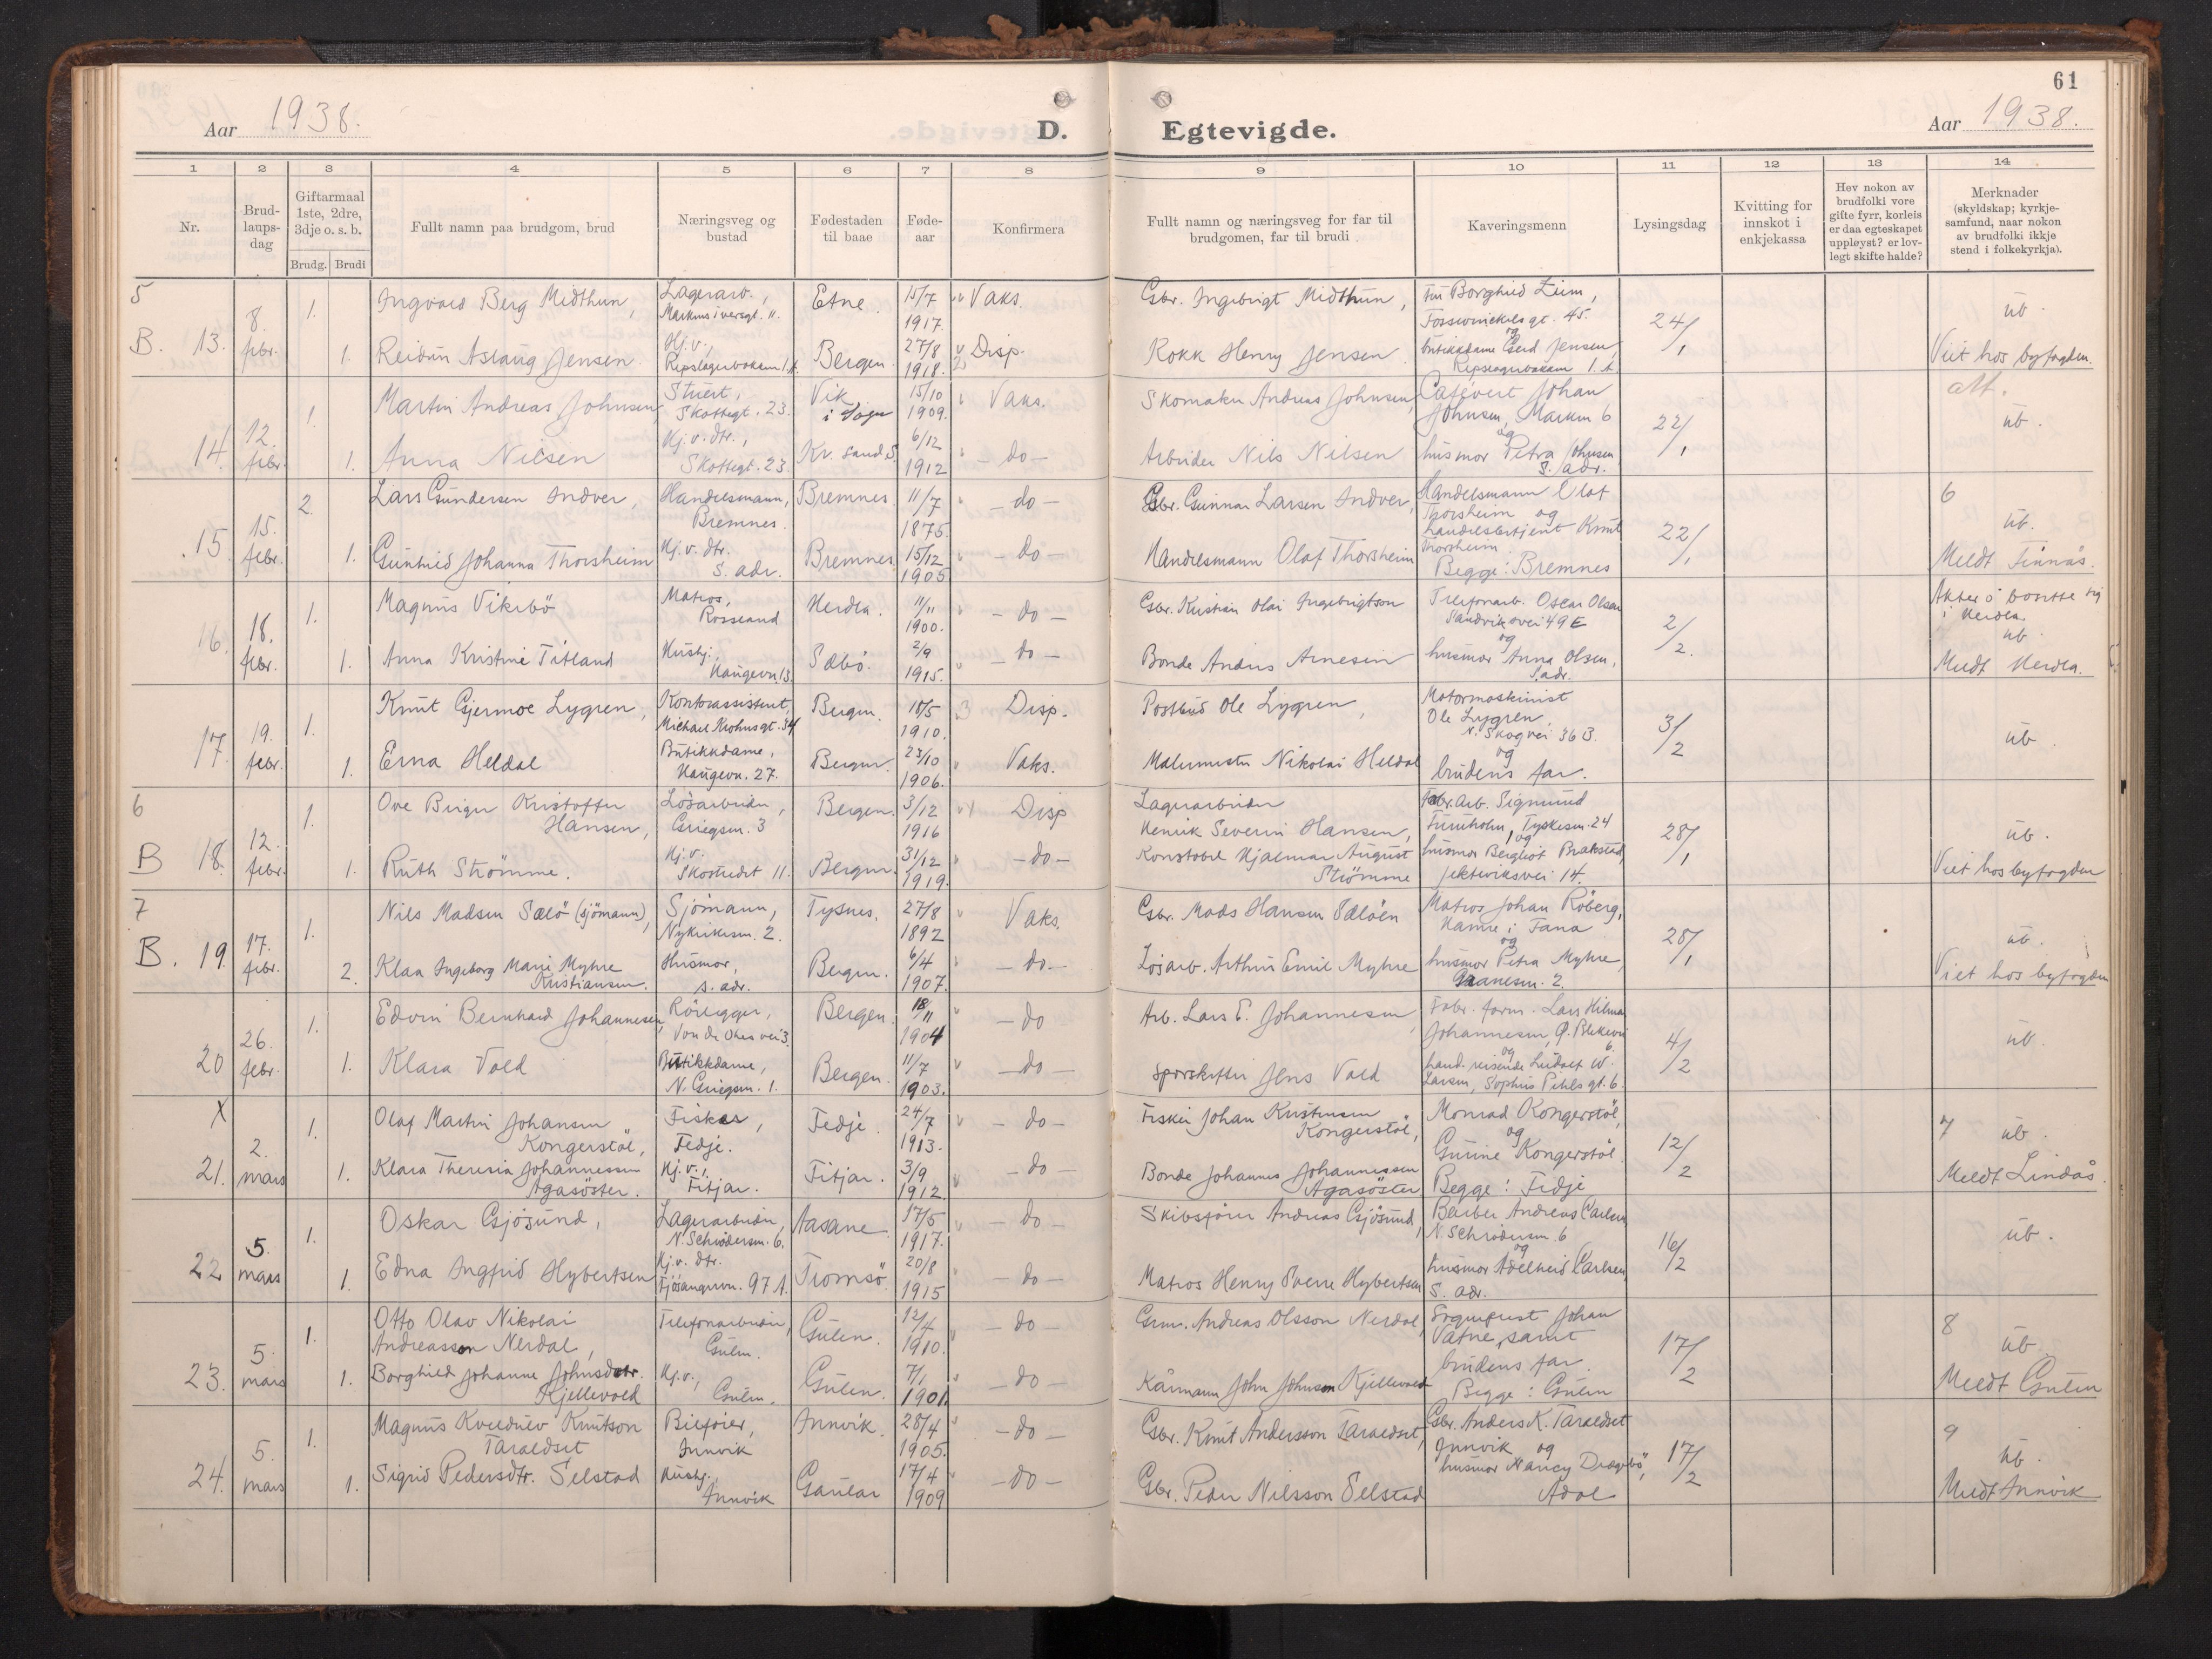 61
Aar 1938.
D.
Egtevigde.
Aar 1938.
1 2 3 4 5 6 7 8 9 10 11 12 13 14
Nr.
Brud-
laups-
dag
Giftarmaal
1ste, 2dre,
3dje o. s. b.
Brudg. Brudi
Fullt namn paa brudgom, brud
Næringsveg og
bustad
Fødestaden
til baae
Føde-
aar
Konfirmera
Fullt namn og næringsveg for far til
brudgomen, far til brudi
Kaveringsmenn
Lysingsdag
Kvitting for
innskot i
enkjekassa
Hev nokon av
brudfolki vore
gifte fyrr, korleis
er daa egteskapet
uppløyst? er lov-
legt skifte halde?
Merknader
(skyldskap; kyrkje-
samfund, naar nokon
av brudfolki ikkje
stend i folkekyrkja).
5
B. 13. 8. febr.
1. Ingvard Berg Midthun, Lagerarb., Etne. 15/7 1917. Vaks. Gbr. Ingebrigt Midthun,
1. Reidun Aslaug Jensen. Hj.v., Bergen. 27/8 1918. Disp. Kokk Henry Jensen.
24/1
üb.
Viet hos byfogden.
14. 12. febr.
1. Martin Andreas Johnsen, Stuert, Skottegt. 23. Vik i Sogn 15/10 1909. Vaks. Skomaker Andreas Johnsen, Johan
Johnsen, Marken 6
og
1. Anna Nilsen Hj.v. dtr., Skottegt. 23. Kr. sand S. 6/12 1912 - do - Arbeider Nils Nilsen husmor Petra Johnsen
S. adr.
22/1
att.
üb.
15. 15. febr.
2. Lars Gundersen Indver, Handelsmann, Bremnes. Bremnes. 11/7 1875. - do - Gbr. Gunnar Larsen Indver, Handelsmann Olaf
Thorsheim og
handelsbetjent Knut
Thorsheim.
1. Gunhild Johanna Thorsheim Hj.v. dtr. S. adr. Bremnes. 15/12 1905 - do - Handelsmann Olaf Thorsheim Begge: Bremnes
22/1
6
üb.
Meldt Finnås.
16. 18. febr.
1. Magnus Vikebö Matros, Rossland Herdla. 11/11 1900. - do - Gbr. Kristian Olai Ingebrigtson Telefonarb. Oscar Olsen
Sandviksvei 49 E
og
1. Anna Kristine Titland Hushj., Haugevn. 13. Sæbö. 2/9 1915. - do - Bonde Anders Arnesen husmor Anna Olsen,
S. adr.
2/2.
Akter å bosette sig
i Herdla.
üb.
Meldt Herdla.
17. 19. febr.
1. Knut Gjermoe Lygren, Kontorassistent, Michael Krohnsgt. 34 Bergen. 18/5 1910. Disp. Postbud Ole Lygren, Motormaskinist
Ole Lygren,
N. Skogvei 36 B.
og
1. Erna Heldal Butikkdame, Haugevn. 27. Bergen. 23/10 1906. Vaks. Malermester Nikolai Heldal brudens far.
3/2
üb.
6
B 18. 12. febr.
1. Ove Birger Kristoffer
Hansen, Lösarbeider, Griegsm. 3 Bergen. 3/12 1916 Disp Lagerarbeider
Henrik Severin Hansen, Fabr. Arb. Sigmund
Furuholm, Tyskesm. 24
og
1. Ruth Strömme. Hj.v. Skostredet 11. Bergen. 31/12 1919. - do - Konstabel Hjalmar August
Strömme husmor Bergliot
Jekteviksvei 14.
28/1
üb.
Viet hos byfogden
7
B. 19. 17. febr.
1. Nils Madsen Sælö (sjömann), Sjömann, Nykirkesm. 2. Tysnes. 27/8 1892 Vaks. Gbr. Mads Hansen Sælöen Matros Johan Röberg,
Hamre i Fana
og
2. Klaa Ingeborg Marie Myhre
Kristiansen. Husmor, s. adr. Bergen. 6/4 1907. - do - Losarb. Arthur Emil Myhre husmor Petra Myhre,
Granesm. 2.
28/1
üb.
Viet hos byfogden
20 26. febr.
1. Edvin Bernhard Johannesen, Rörlegger, Bergen. 18/11 1904 - do Arb. Lars E. Johannesen, Fabr. form. Lars Hilmar
Johannesen, 6.
og
1. Klara Vold Butikkdame, N. Griegsm. 1. Bergen. 11/7 1903. - do - Sporskifter Jens Vold hand. reisende Ludolf W.
Larsen, Sophus Pihls gt. 6.
4/2
üb.
X
21. 2. mars
1. Olaf Martin Johansen
Kongerstöl, Fisker, Fedje. Fedje. 24/7 1913. - do - Fisker Johan Kristensen
Kongerstöl, Monrad Kongerstöl,
og
Gurine Kongerstöl.
1. Klara Theresia Johannessen
Agasöster. Hj.v., Fitjar. Fitjar. 3/9 1912. - do - Bonde Johannes Johannessen
Agasöster Begge: Fedje
12/2
7 üb.
Meldt Lindås.
22 5. mars
1. Oskar Gjösund, Lagerarbeider, N. Schrödersm. 6. Aasane 17/5 1917. - do - Skibsförer Andreas Gjösund, Barber Andreas Carlsen,
N. Schrödersm. 6
og
1. Edna Ingfrid Hybertsen Hj.v. dtr. Fjösangervn. 97 A. Tromsö. 20/8 1915 - do - Matros Henry Sverre Hybertsen husmor Adelheid Carlsen,
S. adr.
16/2
üb.
23. 5. mars
1. Otto Olav Nikolai
Andreasson Nerdal, Telefonarbeider, Gulen. Gulen. 12/4 1910. - do - Grm. Andreas Olsson Nerdal, Sogneprest Johan
Vatne, samt
1. Borghild Johanne Johnsdotr.
Kjellevold Hj.v., Gulen. Gulen. 7/1 1901. - do - Kårmann John Johnson Kjellevold brudens far.
Begge: Gulen
17/2
8
üb.
Meldt Gulen
24. 5. mars
1. Magnus Kveldulv Knutson
Taraldset Bileier, Innvik Innvik. 28/4 1905. - do - Gbr. Knut Andersson Taraldset, Gbr. Anders K. Taraldset
Innvik og
1. Sigrid Pedersdtr. Selstad Hushj., Innvik Gaular 17/4 1909 - do - Gbr. Peder Nilsson Selstad husmor Nancy Dragebö,
17/2
9
üb.
Meldt Innvik